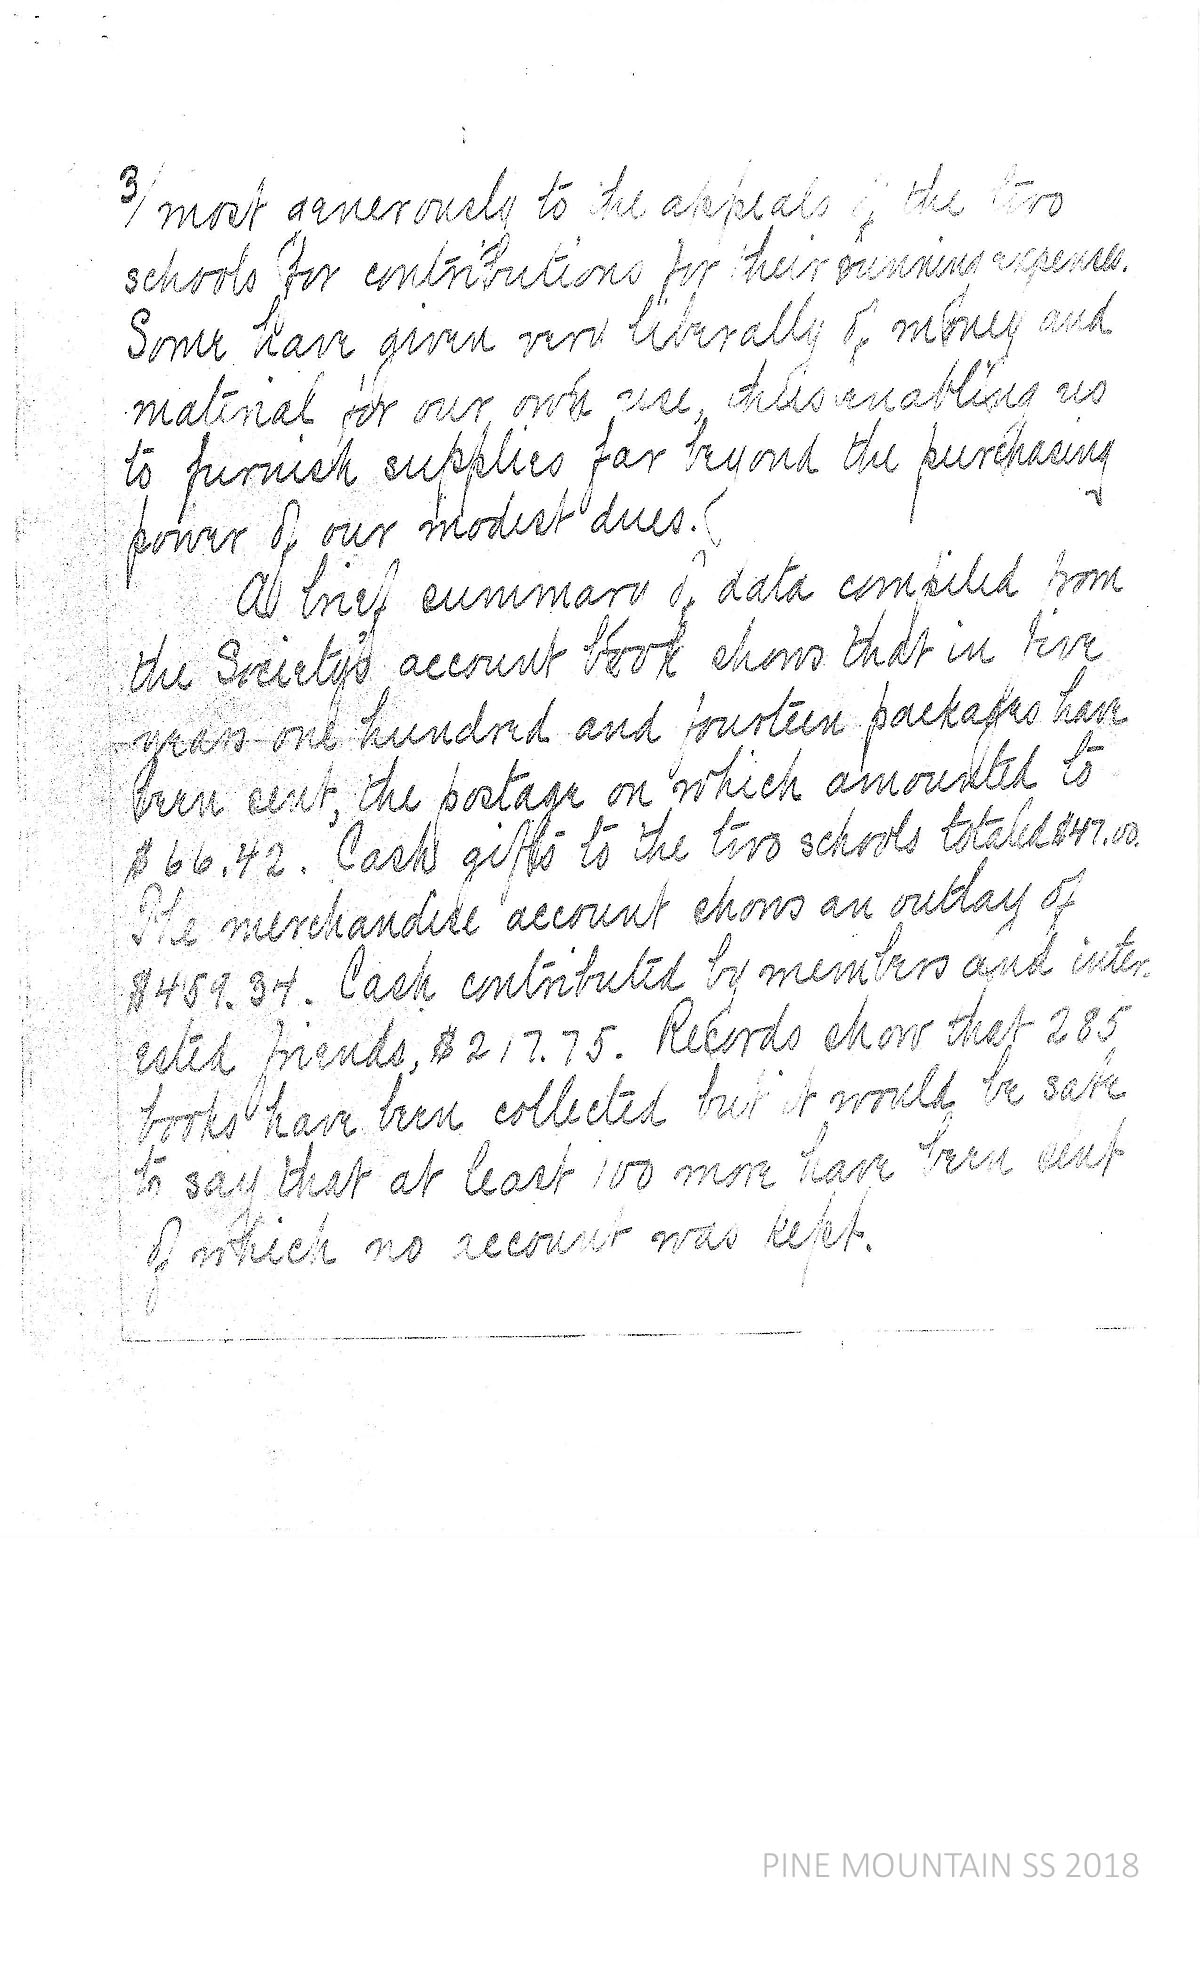 3/ most generously to the appeals of the two
schools for contributions for their running expenses.
Some have given very liberally of money and
material for our own use, thus enabling us
to furnish supplies far beyond the purchasing
power of our modest dues.
A brief summary of data compiled from
the Society's account book shows that in five
years one hundred and fourteen packages have
been sent, the postage on which amounted to
$66.42. Cash gifts to the two schools totaled $47.00.
The merchandise account shows an outlay of
$459.34. Cash contributed by members and inter-
ested friends, $217.75. Records show that 285
books have been collected but it would be safe
to say that at least 100 more have been sent
of which no account was kept.
PINE MOUNTAIN SS 2018